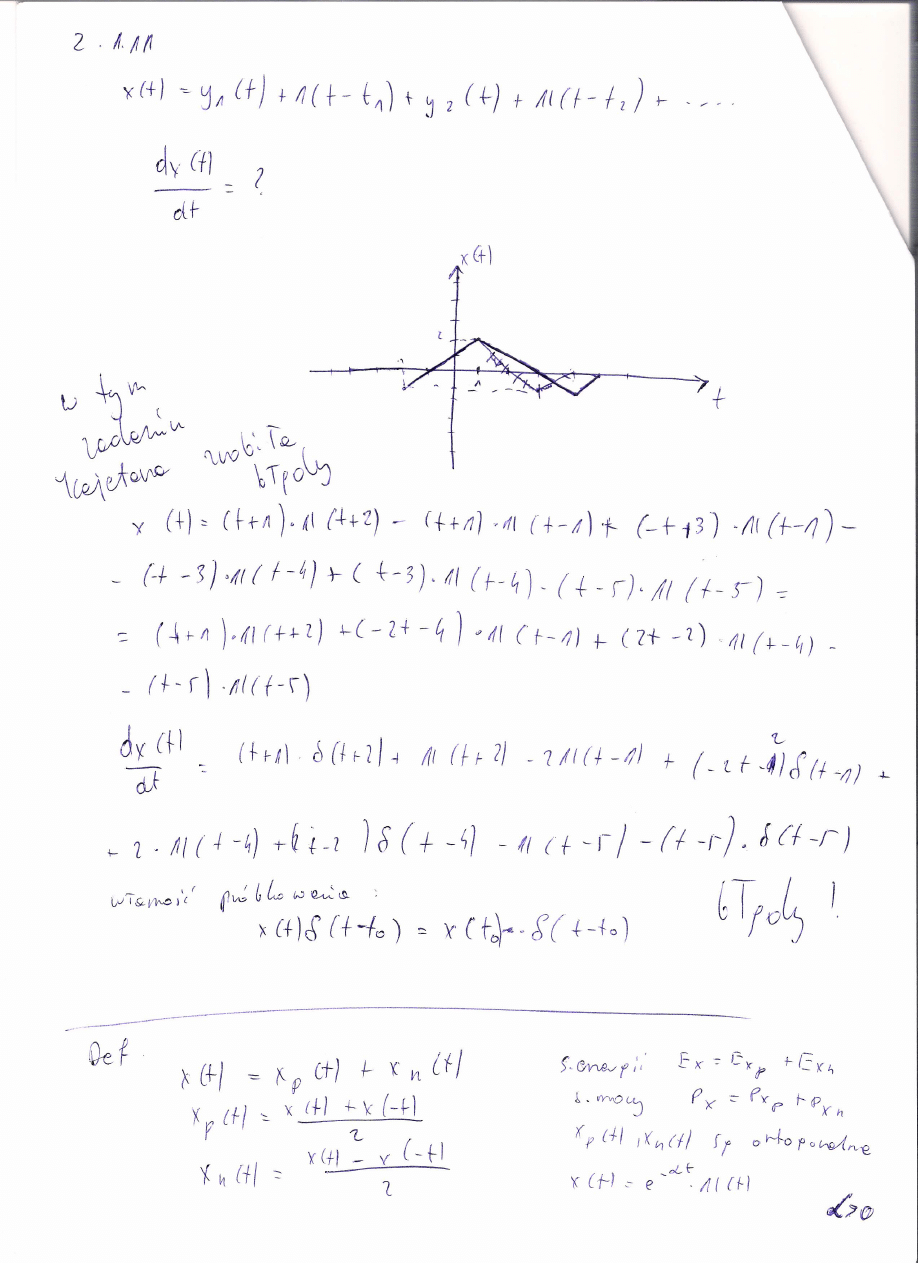 Z. 1.11
x(t) = y₁(t) + 1(t-t₁) + y₂(t) + 1(t-t₂) + ....
dx(t)/dt = ?
x(t)
2
1
t
w tym
zadaniu
Kajetana zrobiła
błędy
x(t) = (t+1)·1(t+2) - (t+1)·1(t-1) + (-t+3)·1(t-1) -
- (-t-3)·1(t-4) + (t-3)·1(t-4) - (t-5)·1(t-5) =
= (t+1)·1(t+2) + (-2t-4)·1(t-1) + (2t-2)·1(t-4) -
- (t-5)·1(t-5)
dx(t)/dt = (t+1)·δ(t+2) + 1(t+2) - 2 1(t-1) + (-2t-2)δ(t-1) +
+ 2·1(t-4) + (2t-2)δ(t-4) - 1(t-5) - (t-5)·δ(t-5)
własność próbkowania:
x(t)δ(t-t₀) = x(t₀)·δ(t-t₀)
błędy!
Def.
x(t) = xₚ(t) + xₙ(t)
xₚ(t) = (x(t) + x(-t))/2
xₙ(t) = (x(t) - x(-t))/2
s. energii Eₓ = Eₓₚ + Eₓₙ
s. mocy Pₓ = Pₓₚ + Pₓₙ
xₚ(t), xₙ(t) są ortogonalne
x(t) = e^(-αt)·1(t)
α>0